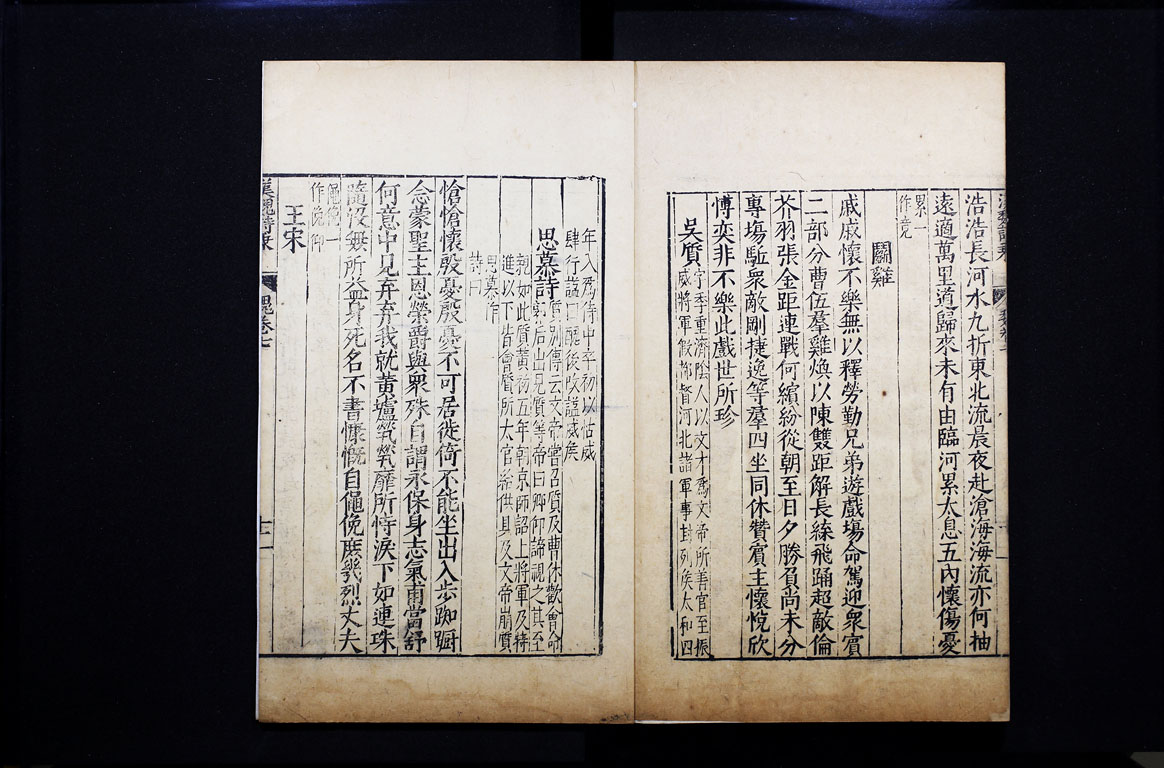 浩浩長河水九折東北流晨夜赴滄海海流亦何抽
遠適萬里道歸來未有由臨河累太息五內懷傷憂
累一
作竟
鬭雞
戚戚懷不樂無以釋勞勤兄弟遊戲塲命駕迎衆賓
二部分曹伍羣雞煥以陳雙距解長緌飛踊超敵倫
芥羽張金距連戰何繽紛從朝至日夕勝負尚未分
專塲駈衆敵剛捷逸等羣四坐同休贊賔主懷悅欣
愽奕非不樂此戲世所珍
吳質
字季重濟陰人以文才爲文帝所善官至振
威將軍假都督河北諸軍事封列矦太和四
年入爲侍中卒初以怙威
肆行謚曰醜後改謚威矦
思慕詩
質別傳云文帝嘗召質及曹休歡會命
郭后出見質等帝曰卿仰諦視之其至
親如此質黃初五年朝京師詔上將軍及特
進以下皆會質所太官給供具及文帝崩質
思慕作
詩曰
愴愴懷殷憂殷憂不可居徙倚不能坐出入步踟蹰
念蒙聖主恩榮爵與衆殊自謂永保身志氣甫當舒
何意中見弃弃我就黃壚煢煢靡所恃淚下如連珠
隨沒無所益身死名不書慷慨自僶俛庶幾烈丈夫
僶俛一
作俛仰
王宋